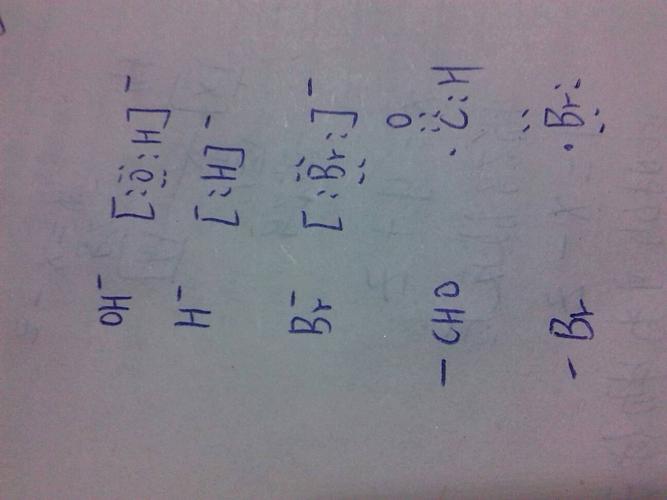 OH⁻ [:Ö:H]⁻
H⁻ [:H]⁻
Br⁻ [:B̤̈r:]⁻
O
—CHO ·C:H
—Br ·B̤̈r: